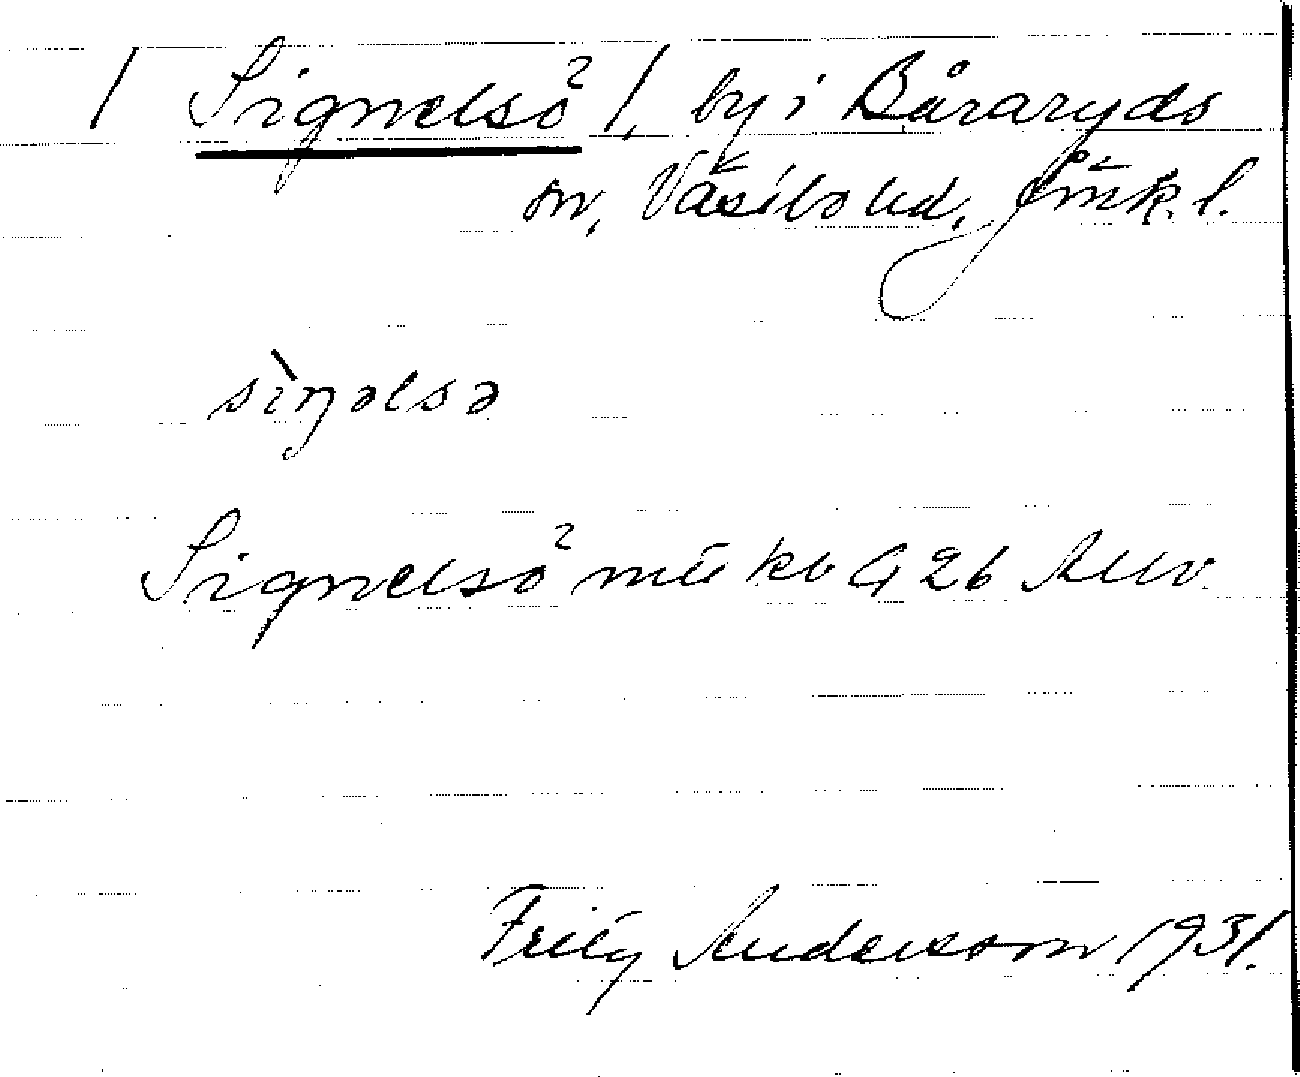 / Signelsö² /, by i Båraryds
sn, Västbo hd, Jönk. l.
sìŋəlsə
Signelsö² G 26
Fritz Anderson 1931.